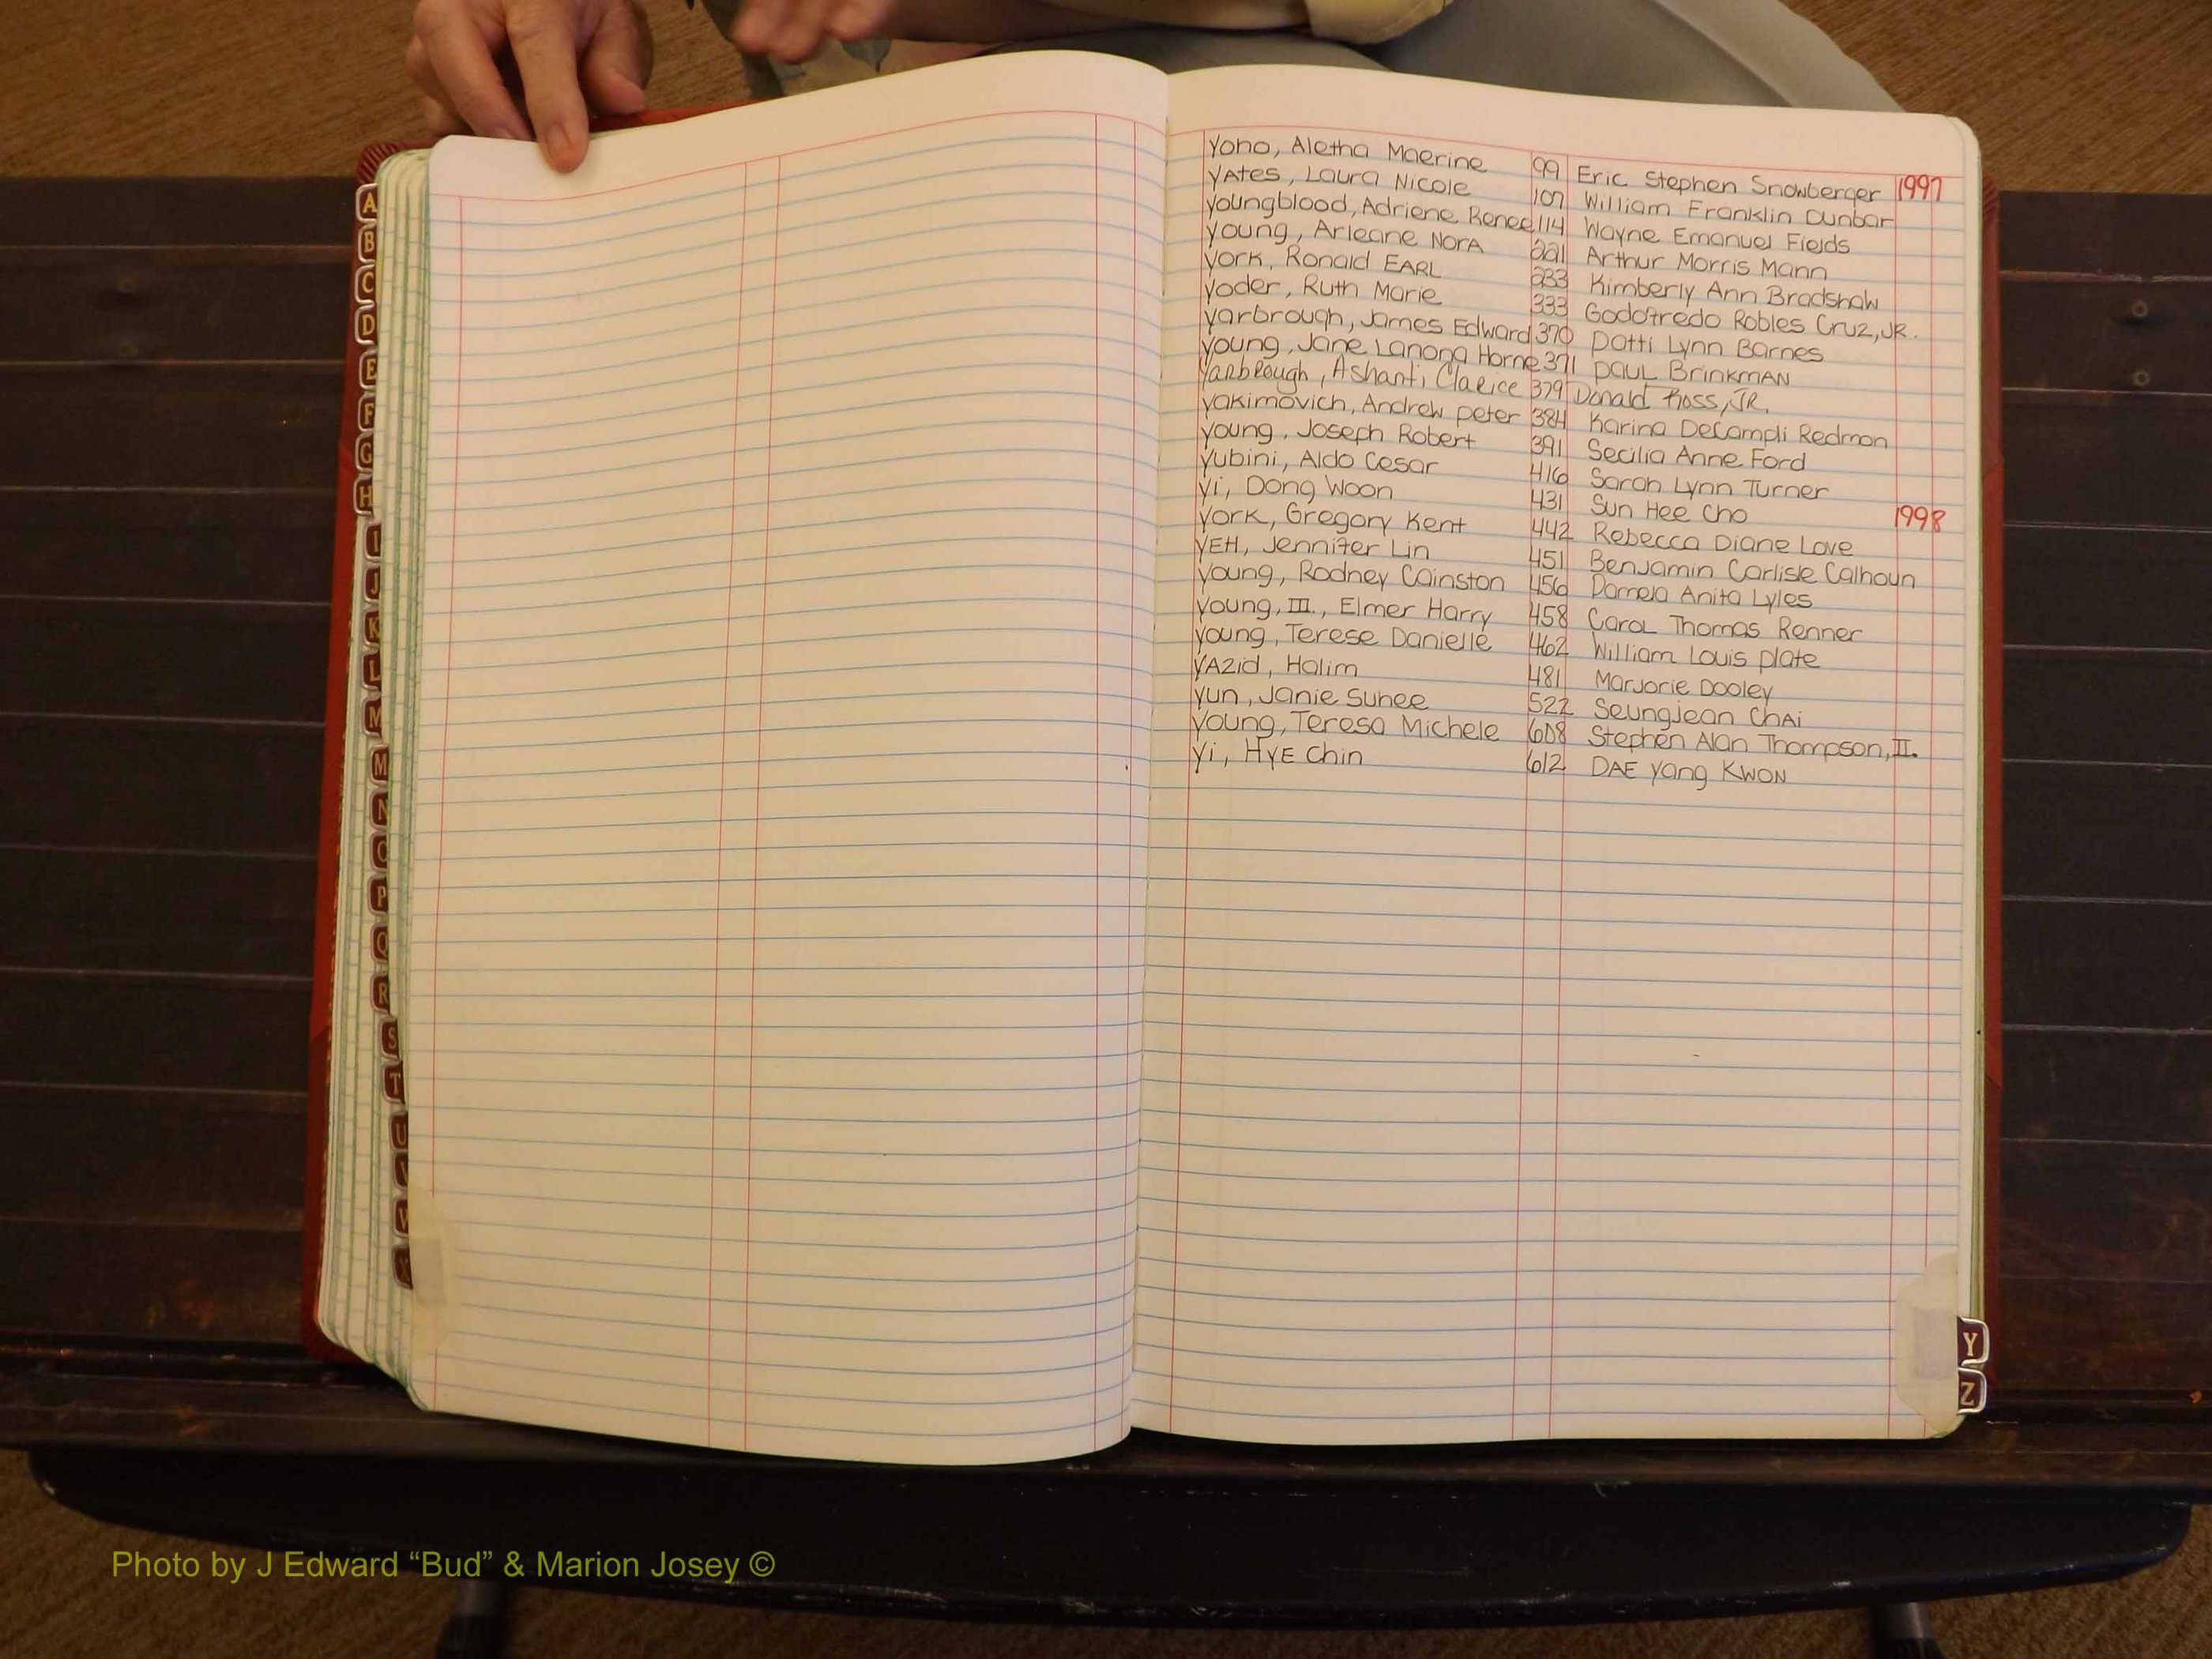 Yoho, Aletha Maerine 99 Eric Stephen Snowberger 1997
YAtes, Laura Nicole 107 William Franklin Dunbar
Youngblood, Adriene Renee 114 Wayne Emanuel Fields
Young, Arleane NorA 221 Arthur Morris Mann
York, Ronald EARL 233 Kimberly Ann Bradshaw
Yoder, Ruth Marie 333 Godofredo Robles Cruz, JR.
Yarbrough, James Edward 370 Patti Lynn Barnes
Young, Jane Lanona Horne 371 PAUL BrinkmAN
Yarbrough, Ashanti Clarice 379 Donald Ross, JR.
Yakimovich, Andrew Peter 384 Karina DeCampli Redmon
Young, Joseph Robert 391 Secilia Anne Ford
Yubini, Aldo Cesar 416 Sarah Lynn Turner
Yi, Dong Woon 431 Sun Hee Cho 1998
York, Gregory Kent 442 Rebecca Diane Love
YEH, Jennifer Lin 451 Benjamin Carlisle Calhoun
Young, Rodney Cainston 456 Pamela Anita Lyles
Young, III., Elmer Harry 458 Carol Thomas Renner
Young, Terese Danielle 462 William Louis Plate
YAzid, Halim 481 Marjorie Dooley
Yun, Janie Suhee 522 Seungjean ChAi
Young, Teresa Michele 608 Stephen Alan Thompson, II.
Yi, HyE Chin 612 DAE Yang KWON
A
B
C
D
E
F
G
H
I
J
K
L
M
M
N
O
P
Q
R
S
T
U
V
W
Y
Z
Photo by J Edward “Bud” & Marion Josey ©